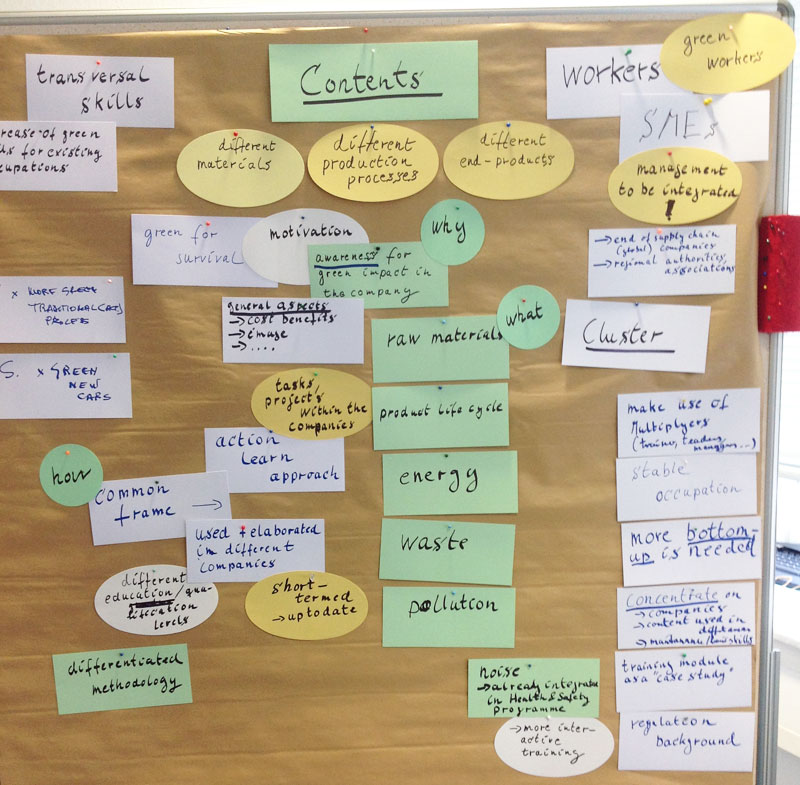 transversal
skills
Contents
Workers
green
workers
SMEs
rease of green
for existing
cupations
different
materials
different
production
processes
different
end-products
management
to be integrated
!
→ end of supply chain
(global) companies
→ regional authorities,
associations
green for
survival
motivation
why
awareness for
green impact in
the company
× MORE GREEN
TRADITIONAL (CARS)
general aspects
→ cost benefits
→ image
→ ....
what
raw materials
Cluster
S. × GREEN
NEW
CARS
tasks,
projects
within the
companies
product life cycle
make use of
Multiplyers
(trainer, teachers
managers...)
action
learn
approach
how
energy
stable
occupation
common
frame →
used + elaborated
in different
companies
waste
more bottom-
up is needed
different
education/qua-
lification
levels
short-
termed
→ up to date
pollution
Concentrate on
→ companies
→ content used in
differentiated
methodology
noise
→ already integrated
in Health & Safety
Programme
training module
as a "case study"
→ more inter-
active
training
regulation
background